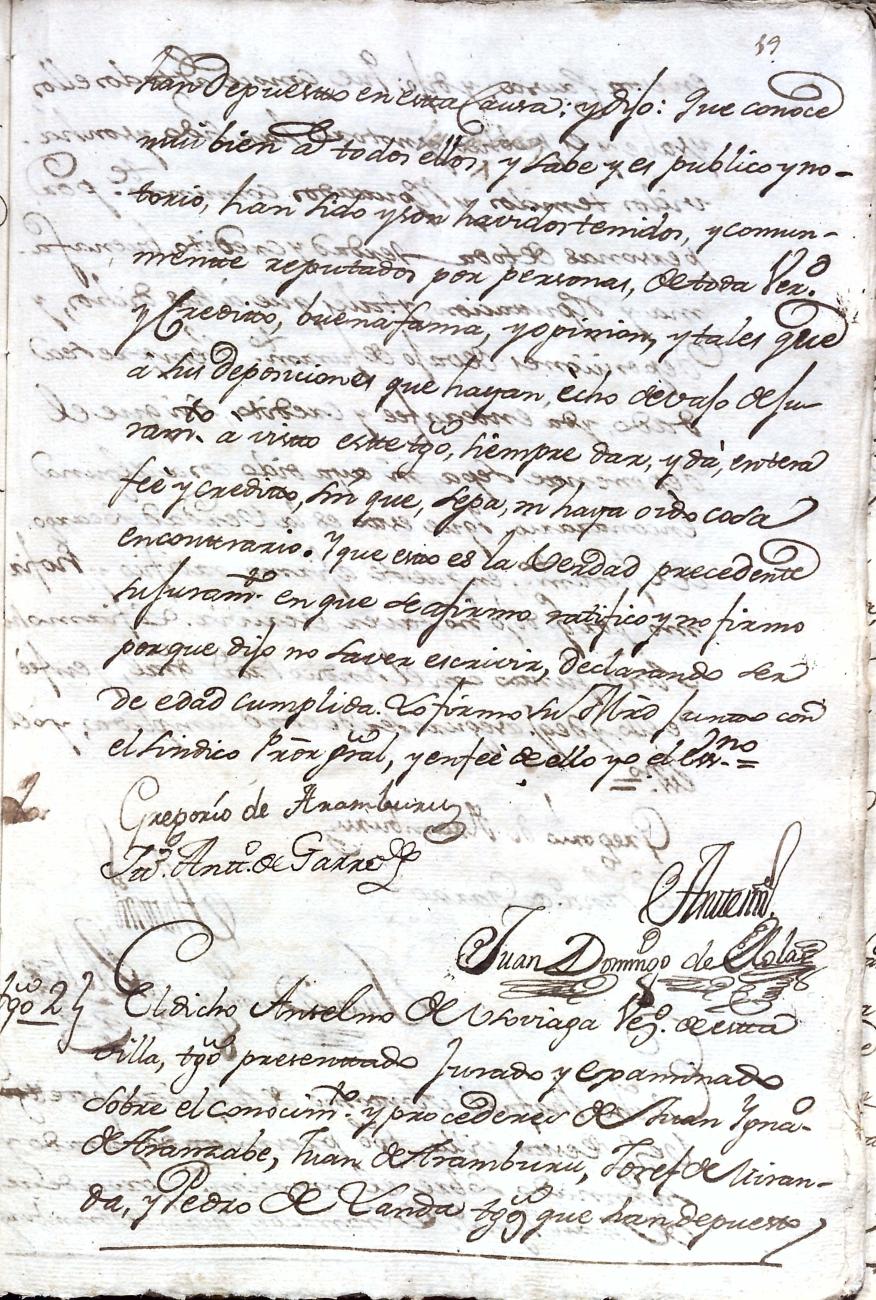 59
han depuesto en esta Causa; y dijo: Que conoce
mui bien a todos ellos, y save y es publico y no-
torio, han sido y son havidos tenidos, y comun-
mente reputados por personas, de toda Ver.d
y Credito, buena fama, y opinion, y tales que
a sus deposiciones que hayan, echo devajo de ju-
ram.to a visto este tgô, siempre dar, y dà, entera
feè y credito, sin que, sepa, ni haya oido cosa
encontrario. Y que esto es la Verdad precedente
su juram.to en que se afirmo ratifico y no firmo
porque dijo no saver escrivir, declarando ser
de edad cumplida. Lo firmo su Mrd Junto con
el sindico Pror gral, y en feè de ello yo el Ess.no =
Gregorio de Aramburu
Ju.o Antt.o de Garro
Antemi
Juan Domingo de
tgô 2
El dicho Anselmo de Usoviaga Vez.o de esta
villa, tgô presentado Jurado y examinado
sobre el conocim.to y procederes de Juan Ygna.o
de Aranzabe, Juan de Aramburu, Josef de Miran-
da, y Pedro de Landa tgôs que han depuesto